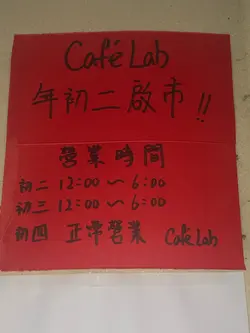 Café Lab
年初二啟市!!
營業時間
初二 12:00 ~ 6:00
初三 12:00 ~ 6:00
初四 正常營業 Café Lab